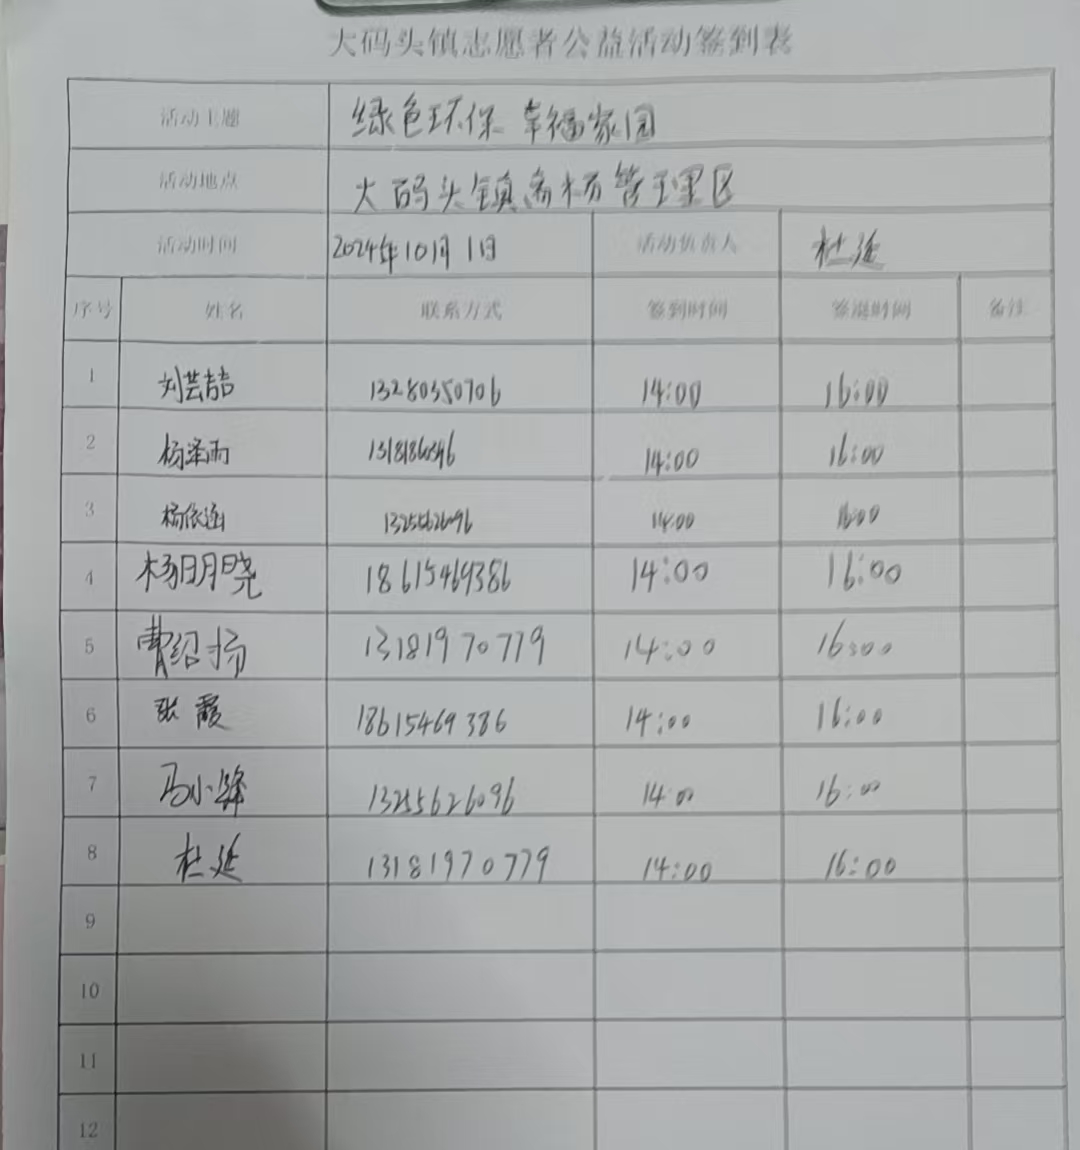 大码头镇志愿者公益活动签到表
活动主题 绿色环保 幸福家园
活动地点 大码头镇 杨管理区
活动时间 2024年10月1日 活动负责人 杜延
序号 姓名 联系方式 签到时间 签退时间 备注
1 刘芸喆 13280350706 14:00 16:00
2 杨泽雨 14:00 16:00
3 杨依涵 13255626096 14:00 16:00
4 杨明晓 18615469386 14:00 16:00
5 曹绍扬 13181970779 14:00 16:00
6 张霞 18615469386 14:00 16:00
7 马小 13255626096 14:00 16:00
8 杜延 13181970779 14:00 16:00
9
10
11
12